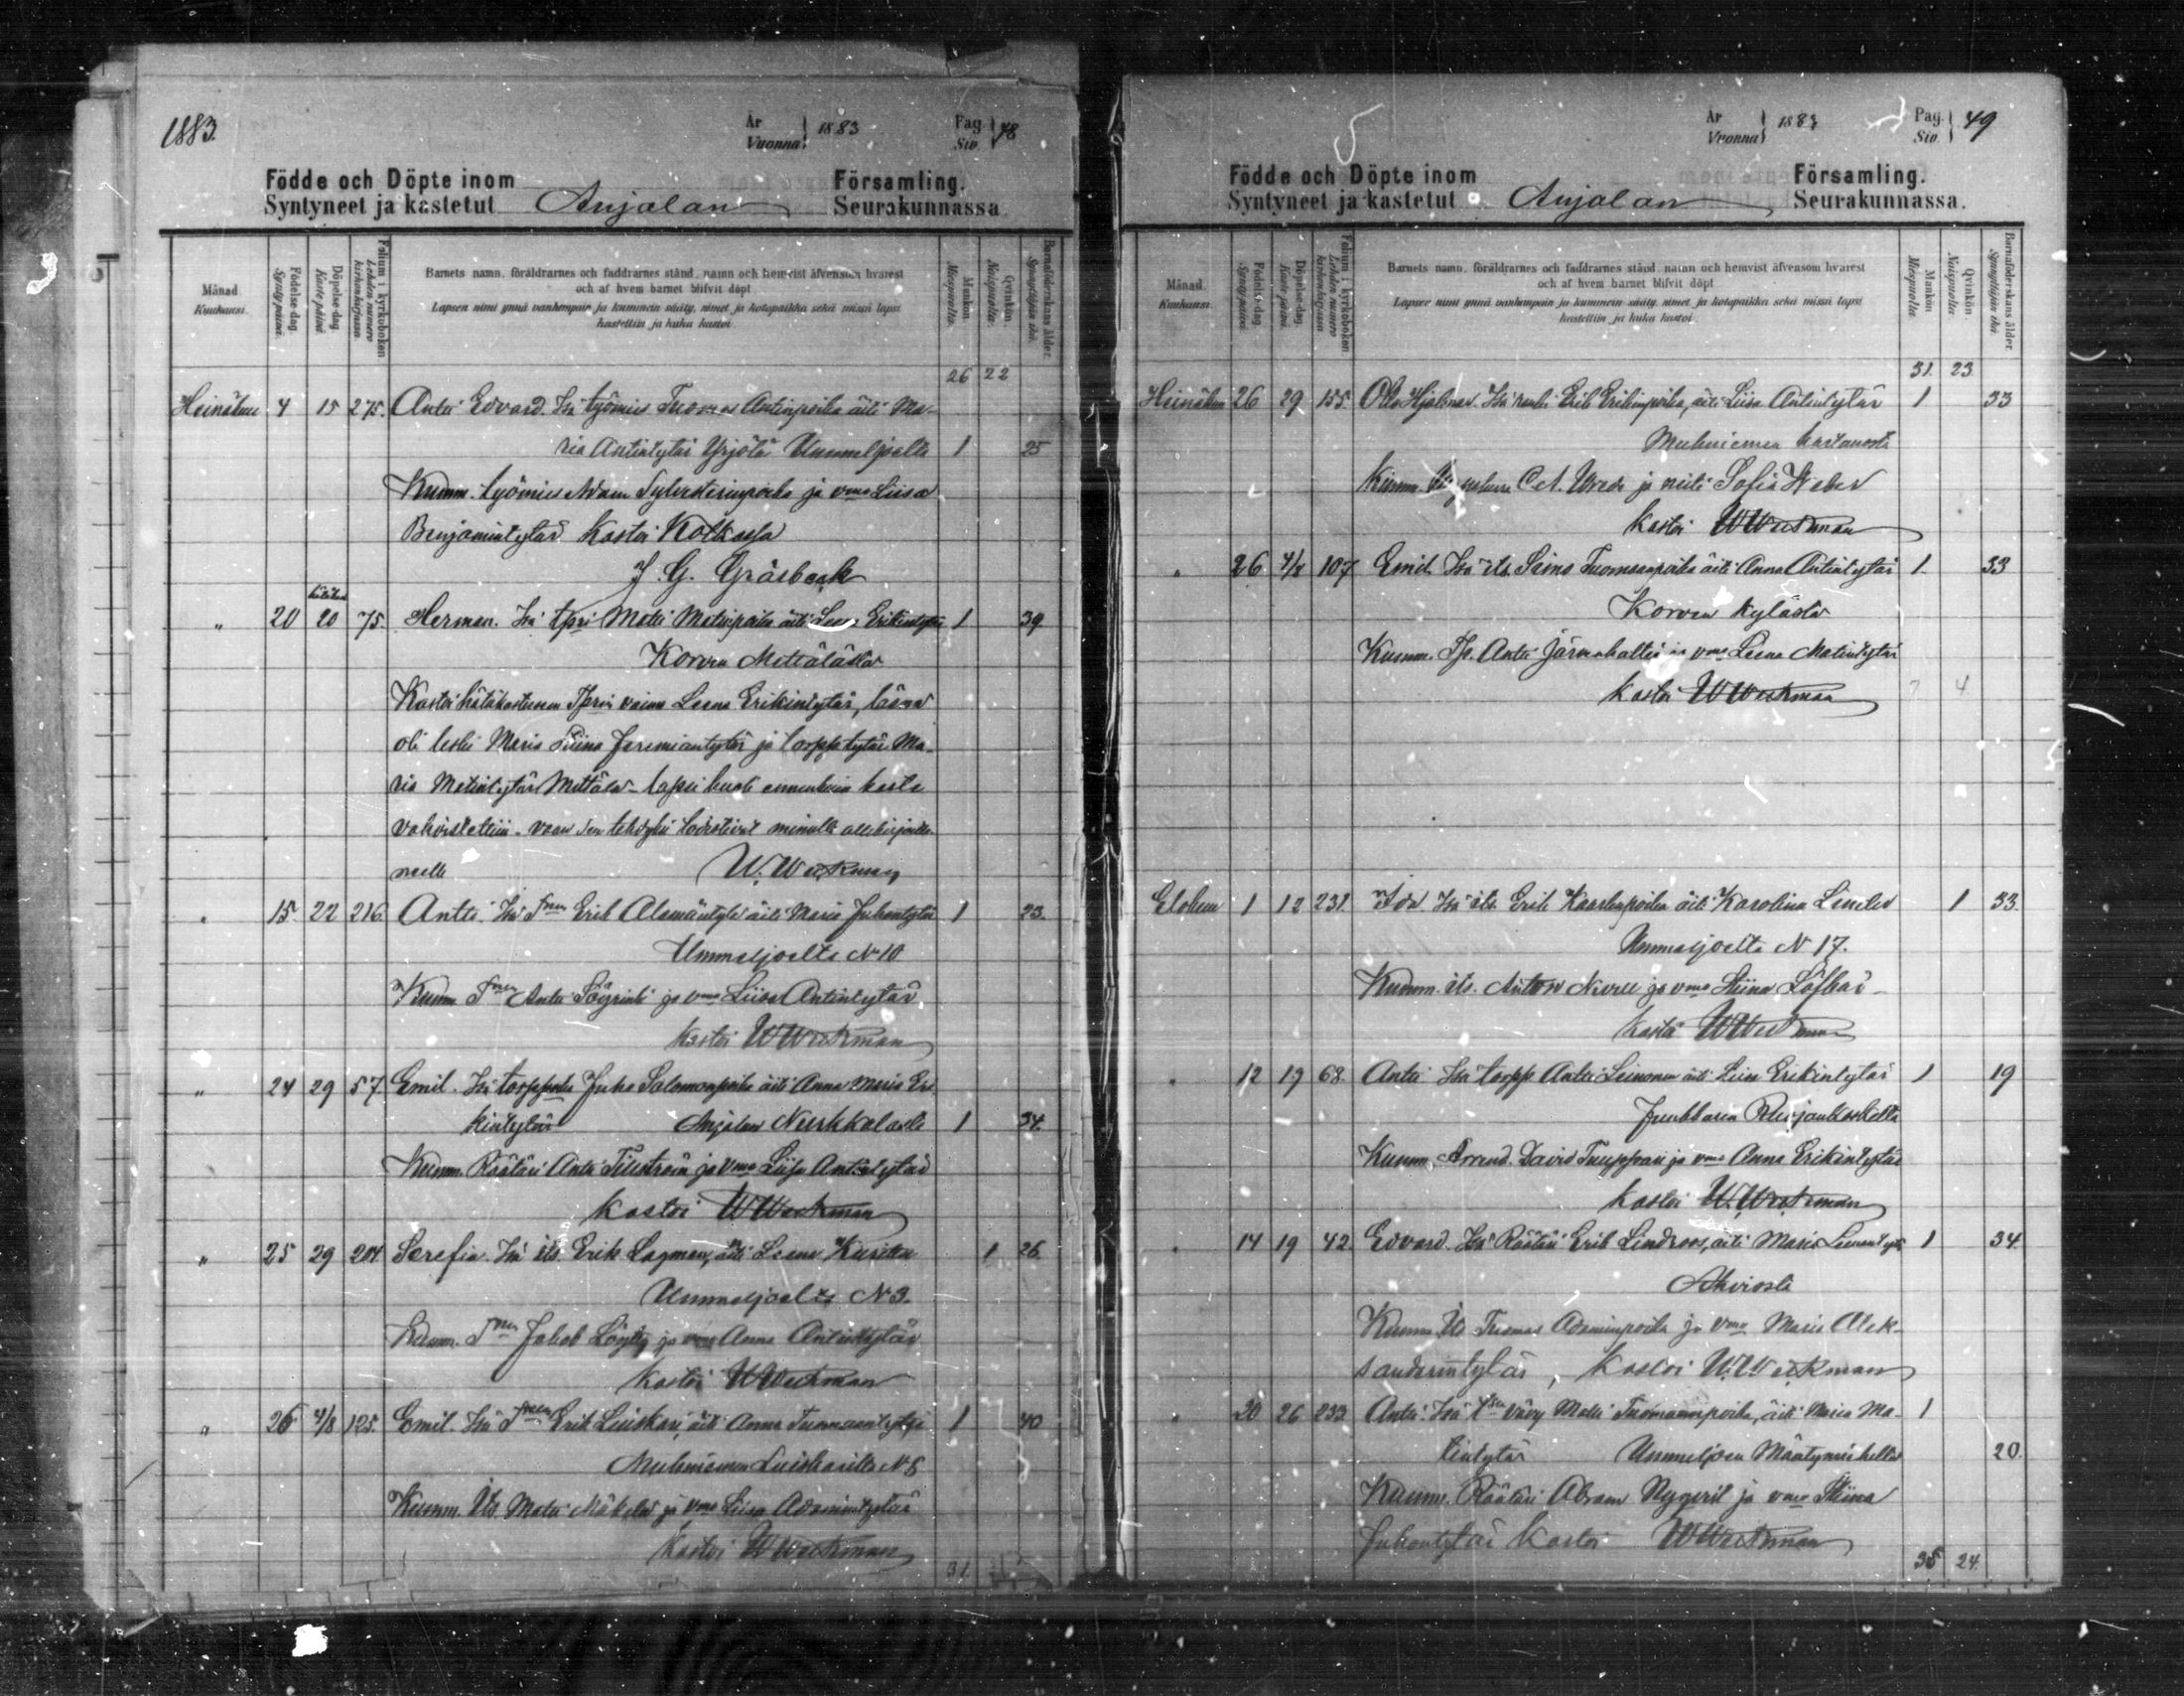 1883.
År
Vuonna 1883
Pag.
Siv. 48
Födde och Döpte inom Församling.
Syntyneet ja kastetut Anjalan Seurakunnassa
Månad
Kuukausi.
Födelse-dag.
Syntypäivä.
Döpelse-dag.
Kastepäivä.
Folium i kyrkoboken
Lehden numero kirkonkirjassa
Barnets namn, föräldrarnes och faddrarnes stånd, namn och hemvist äfvensom hvarest
och af hvem barnet blifvit döpt
Lapsen nimi ynnä vanhempain ja kummein sääty, nimet ja kotopaikka sekä missä lapsi
kastettiin ja kuka kastoi
Mankön.
Miespuolta.
Qvinkön.
Naispuolta.
Barnaföderskans ålder.
Synnyttäjän ikä.
26 22
Heinäkuu 4 15 275. Antti Edvard. Isä työmies Tuomas Antinpoika äiti Ma-
ria Antintytär Yrjölä Ummeljoelta 1 25
Kumm. työmies Adam Sylvesterinpoika ja vmo Liisa
Benjamintytär Kastoi Kotkassa
J. G. Gråsback
" 20 20 75. Herman. Isä Matti Matinpoika äiti Leena Erikintytär 1 39
Korven Mettälästä
Kastoi hätäkasteen vaimo Leena Erikintytär, läsnä
oli leski Maria Stiina Jeremiantytär ja torpptytär Ma-
ria Matintytär Mettälä - lapsi kuoli ennenkuin kaste
vahvistettiin - vaan sen tehdyksi todistivat minulle allekirjoitta-
neelle W. Weckman
" 15. 22 216. Antti. Isä Erik Alamäntylä äiti Maria Juhontytär 1 23.
Ummeljoelta No 10
Kumm. Antti ja vmo Liisa Antintytär
Kastoi W Weckman
" 24 29 57. Emil. Isä torppari Juho Salomonpoika äiti Anna Maria Eri-
kintytär Anjalan 1 34.
Kumm. Räätäli Antti ja vmo Liisa Antintytär
Kastoi W Weckman
" 25 29 204 Serefia. Isä its. Erik Lagman, äiti Leena 1 26
Ummeljoelta No 3.
Kumm. Jakob Löytty ja vmo Anna Antintytär
Kastoi W Weckman
" 26 4/8 125. Emil. Isä Erik Luiskari, äiti Anna Tuomaantytär 1 40
Muhniemen Luiskarilta No 8
Kumm. Its Matti Mäkelä ja vmo Liisa Adamintytär
Kastoi W Weckman
31.
År
Vuonna 1883
Pag.
Siv. 49
Födde och Döpte inom Församling.
Syntyneet ja kastetut Anjalan Seurakunnassa.
Månad
Kuukausi.
Födelse-dag.
Syntypäivä.
Döpelse-dag.
Kastepäivä.
Folium i kyrkoboken
Lehden numero kirkonkirjassa
Barnets namn, föräldrarnes och faddrarnes stånd, namn och hemvist äfvensom hvarest
och af hvem barnet blifvit döpt
Lapsen nimi ynnä vanhempain ja kummein sääty, nimet ja kotopaikka sekä missä lapsi
kastettiin ja kuka kastoi.
Mankön
Miespuolta.
Qvinkön.
Naispuolta.
Barnaföderskans ålder.
Synnyttäjän ikä.
31. 23
Heinäkuu 26 29 155. Otto Hjalmar. Isä renki Erik Erikinpoika, äiti Liisa Antintytär 1 33
Muhniemen kartanosta
Kumm. Wrede ja neiti Sofia Weber
Kastoi W Weckman
" 26 4/8 107 Emil. Isä its. Simo Tuomaanpoika äiti Anna Antintytär 1. 33
Korven kylästä
Kumm. Antti ja vmo Leena Matintytär
Kastoi W Weckman 7 4
Elokuu 1 12 231. Ida. Isä its. Erik Kaarlenpoika äiti Karolina Linder 1 33.
Ummeljoelta N 17.
Kumm. its. Anton ja vmo Stiina
Kastoi W Weckman
" 12 19 68. Antti Isä torpp. Antti Leinonen äiti Liisa Erikintytär 1 19
Junkkarin
Kumm. Arrend. David ja vmo Anna Erikintytär
Kastoi W. Weckman
" 14 19 42 Edvard. Isä Räätäli Erik Lindroos, äiti Maria 1 34.
Ahviosta
Kumm. its Tuomas Adaminpoika ja vmo Maria Alek-
sanderintytär, Kastoi W. Weckman
" 20 26 233 Antti. Isä vävy Matti Tuomaanpoika, äiti Maria Ma- 1
tintytär Ummeljoen 20.
Kumm. Räätäli Abram Nygvist ja vmo Stiina
Juhontytär Kastoi W Weckman
35 24